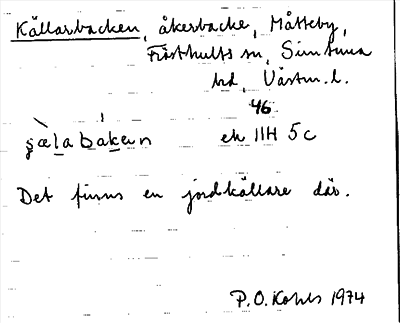 Källarbacken, åkerbacke, Måtteby,
Frösthults sn, Simtuna
hd, Västm. l.
46
ek 11H 5c
Det finns en jordkällare där.
P.O. Kohls 1974